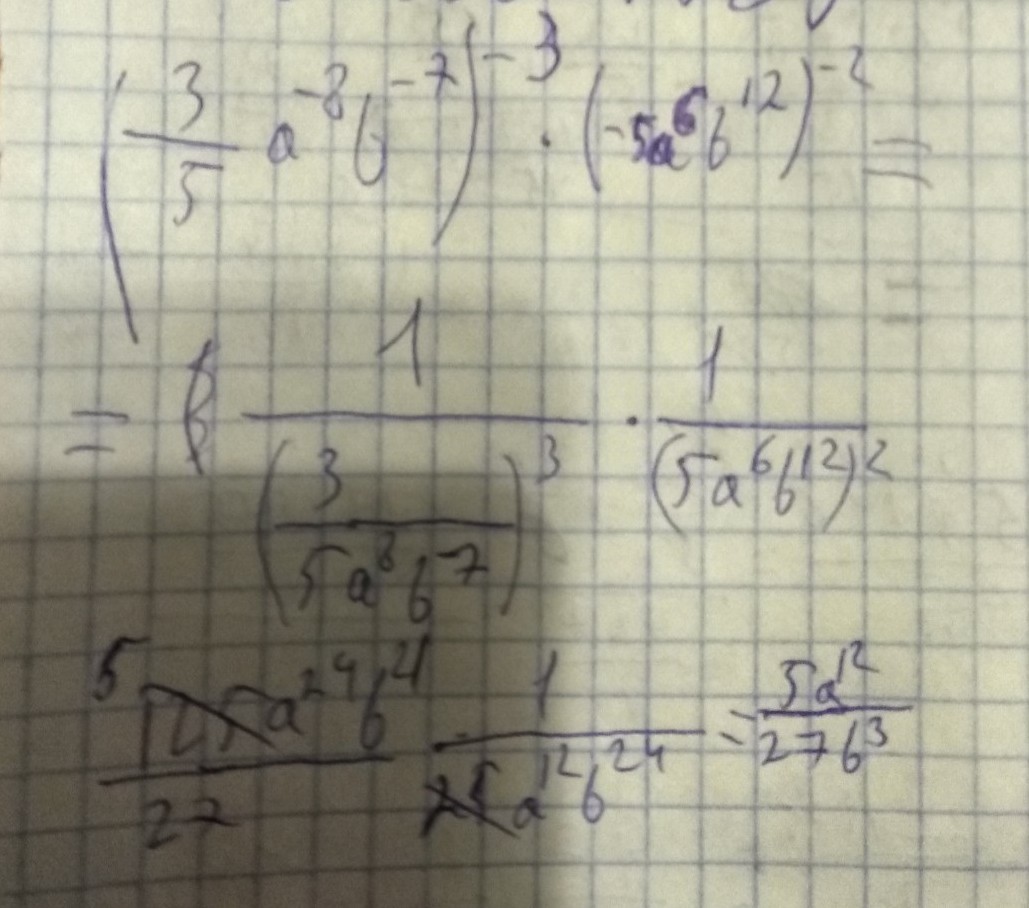 (3/5 a^-8 b^-7)^-3 · (-5a^6 b^12)^-2 =
= 1/(3/(5a^8 b^7))^3 · 1/(5a^6 b^12)^2
5 125a^24 b^21/27 · 1/(25a^12 b^24) = 5a^12/(27b^3)